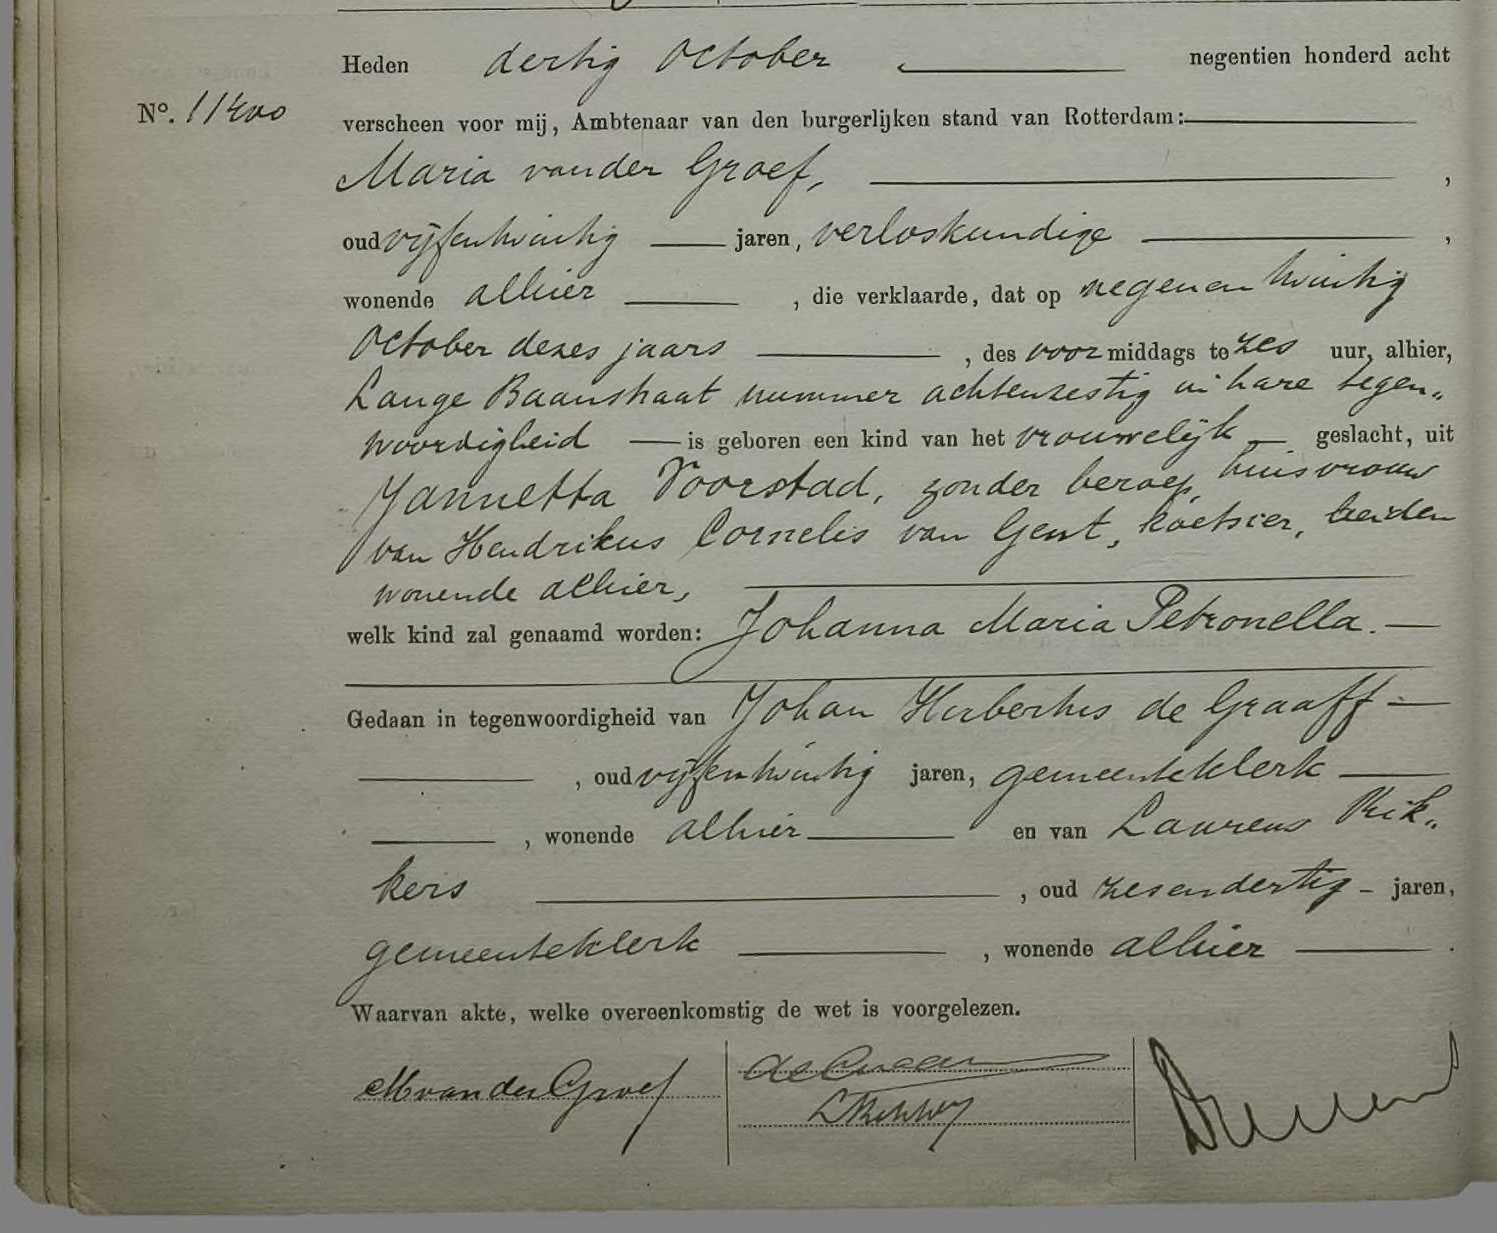 Heden dertig October negentien honderd acht
No. 11400 verscheen voor mij, Ambtenaar van den burgerlijken stand van Rotterdam:
Maria van der Groef, ,
oud vijfentwintig jaren, verloskundige ,
wonende alhier , die verklaarde, dat op negenentwintig
October dezes jaars , des voormiddags te zes uur, alhier,
Lange Baanstraat nummer achtenzestig in hare tegen„
woordigheid is geboren een kind van het vrouwelijk geslacht, uit
Jannetta Voorstad, zonder beroep, huisvrouw
van Hendrikus Cornelis van Gent, koetsier, beiden
wonende alhier,
welk kind zal genaamd worden: Johanna Maria Petronella.
Gedaan in tegenwoordigheid van Johan Huibertus de Graaff
, oud vijfentwintig jaren, gemeenteklerk
, wonende alhier en van Laurens Rik„
kers , oud zesendertig jaren,
gemeenteklerk , wonende alhier .
Waarvan akte, welke overeenkomstig de wet is voorgelezen.
M van der Groef